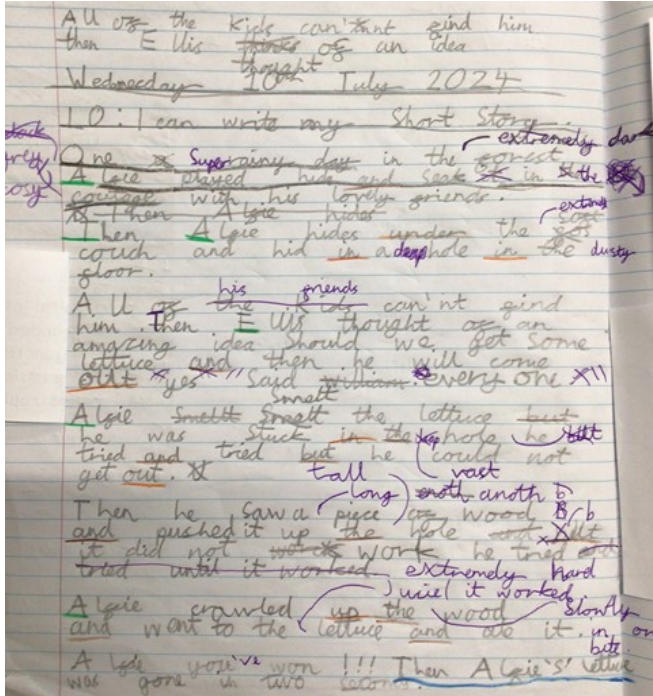 All of the kids can'tnt find him
then Ellis thinks of an idea
thought
Wednesday 10th July 2024
LO: I can write my Short Story.
extremely dark
One Super rainy day in the forest
Algie played hide and Seek in the
courage with his lovely friends.
Then Algie hides
Then Algie hides under the
couch and hid in a deep hole in the dusty
floor.
his friends
All of the kids can'nt find
him. Then Ellis thought of an
amazing idea Should we get Some
lettuce and then he will come
out "yes" Said William every one
Smelt
Algie Smellt Smelt the lettuce but
he was Stuck in the hole he
tried and tried but he could not
get out.
vast
tall
long
anoth
Then he Saw a piece of wood
and pushed it up the hole
it did not work he tried
tried until it worked extremely hard
until it worked
Algie crawled up the wood slowly
and went to the lettuce and ate it. in on
bite.
Algie you've won !!! Then Algie's' lettuce
was gone in two seconds.